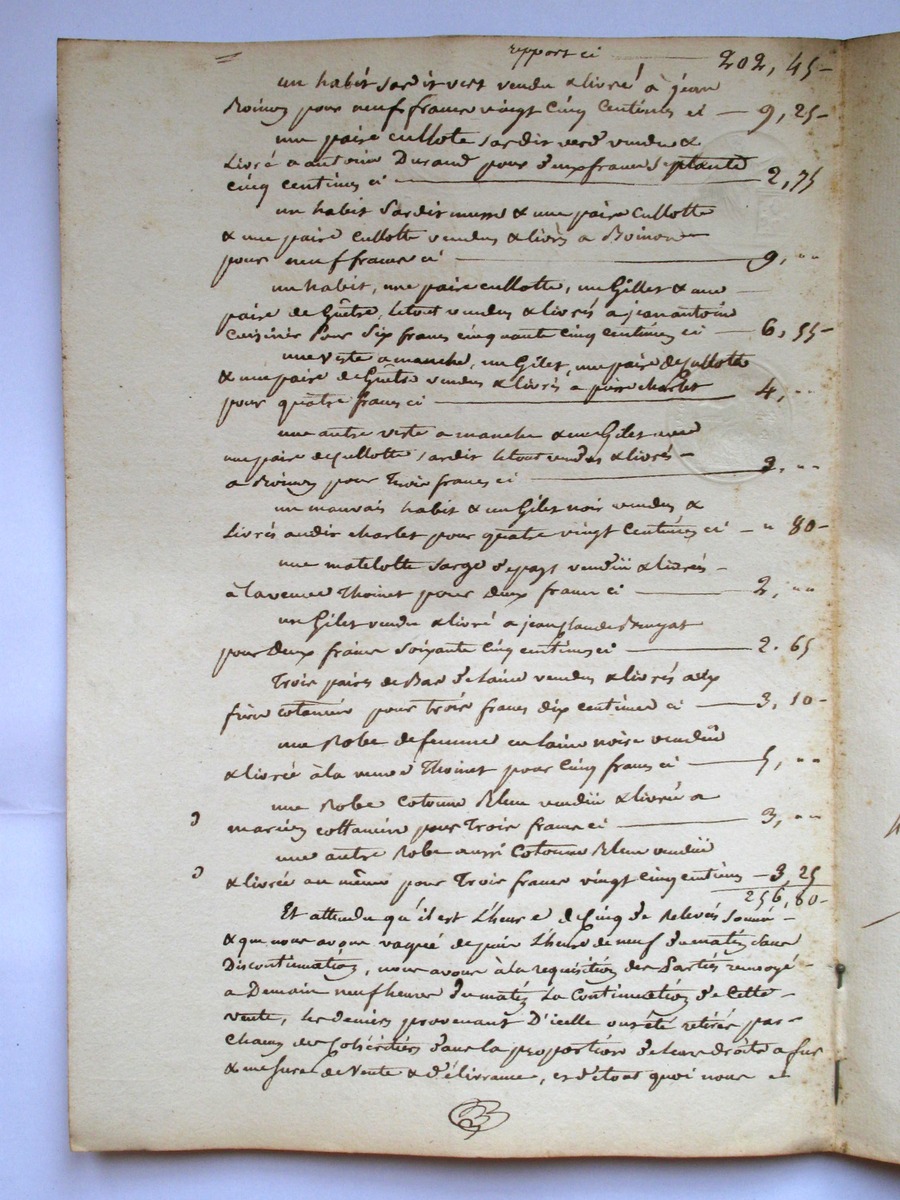 repport ci 202, 45-
un habit sardit vert vendu & livré à jean
Boinon pour neuf francs vaingt cinq centimes ci — 9, 25-
une paire cullotte sardit verd vendu &
Livré a antoine Durand pour deux francs septante
cinq centimes ci — 2, 75
un habit sardit musse & une paire Cullotte
& une paire cullotte vendus & livrés a Boinon
pour neuf francs ci — 9, "
un habit, une paire cullotte, un Gillet & une
paire de Guêtre, le tout vendus & livrés a jean antoine
Cuisinier pour Six francs cinquante cinq centimes ci — 6, 55-
une veste a manche, un Gilet, une paire de Cullotte
& une paire de Guêtre vendus & livrés a pierre charlet
pour quatre francs ci — 4, "
une autre veste a manche & un Gilet avec
une paire de Cullotte sardit le tout vendus & livrés -
a Boinon pour Trois francs ci — 3, "
un mauvais habit & un Gilet noir vendus &
Livrés audit charlet pour quatre vingt Centimes ci - " 80-
une matelotte Sarge de pays vendüe & livrés -
à la veuve Thoinet pour deux francs ci — 2, "
un Gilet vendu & livré a jean Claude
pour Deux francs Soixante Cinq centimes ci — 2. 65
Trois paires de Bas de laine vendus & livrés aux
frère cotamin pour trois francs dix centimes ci — 3, 10-
une Robe de femme en laine noire vendüe
& livrée à la veuve Thoinet pour Cinq francs ci — 5, "
une Robe Cotonne Bleue vendüe & livrée a
cottamin pour Trois francs ci — 3, "
une autre Robe aussi Cotonne Bleue vendüe
& livrée au même pour Trois francs vingt cinq centimes — 3, 25
256, 80-
Et attendu qu'il est L'heure de Cinq de Relevée sonné -
& que nous avons vaqué depuis L'heure de neuf du matin sans
Discontinuation, nous avons à la requisition des Parties renvoyé -
a Demain neuf heures du matin La Continuation de Cette -
vente, les deniers provenant D'icelle ont été retirés par -
Chacun des Cohéritiers dans la proportion de leurs droits a fur
& mesure de Vente & délivrance, et de tout quoi nous